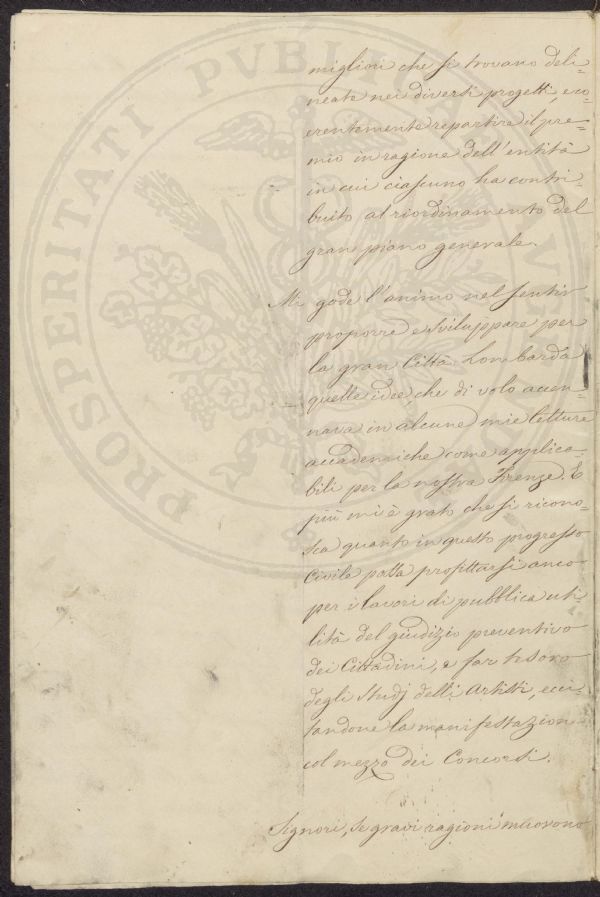 PROSPERITATI PVBLI
migliori che si trovano deli=
neate nei diversi progetti, e co=
erentemente repartire il pre=
mio in ragione dell'entità
in cui ciascuno ha contri=
buito al riordinamento del
gran piano generale.
Mi gode l'animo nel sentir
proporre e sviluppare per
la gran Città Lombarda
quelle idee, che di volo accen=
nava in alcune mie letture
accademiche come applica=
bili per la nostra Firenze. E
più mi è grato che si ricono=
sca quanto in questo progresso
Civile possa profittarsi anco
per i lavori di pubblica uti=
lità del giudizio preventivo
dei Cittadini, e far tesoro
degli Studj delli Artisti, ecci=
tandone la manifestazion
col mezzo dei Concorsi.
Signori, se gravi ragioni muovono